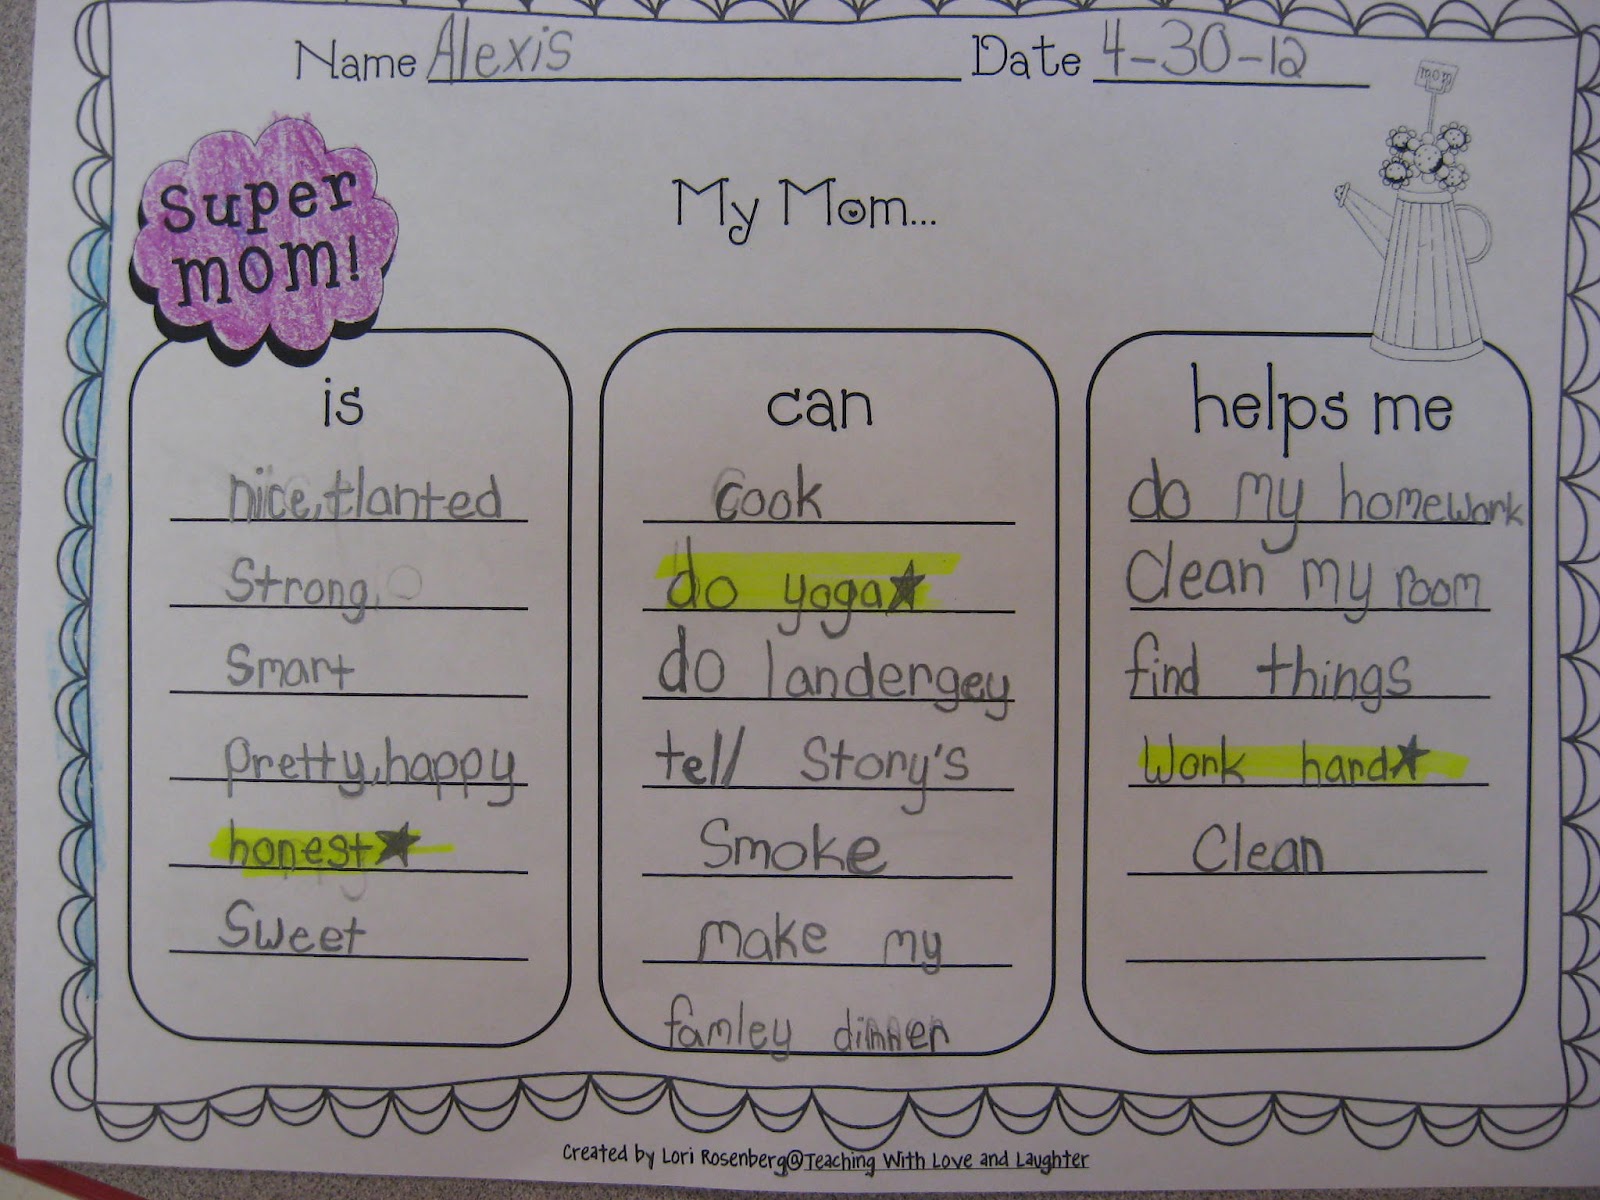 Name Alexis Date 4-30-12
mom
Super
mom!
My Mom...
is
nice, tlanted
Strong,
Smart
pretty, happy
honest★
Sweet
can
Cook
do yoga★
do landergey
tell Story's
Smoke
make my
famley dinner
helps me
do my homework
Clean my room
find things
Work hard★
Clean
Created by Lori Rosenberg@Teaching With Love and Laughter